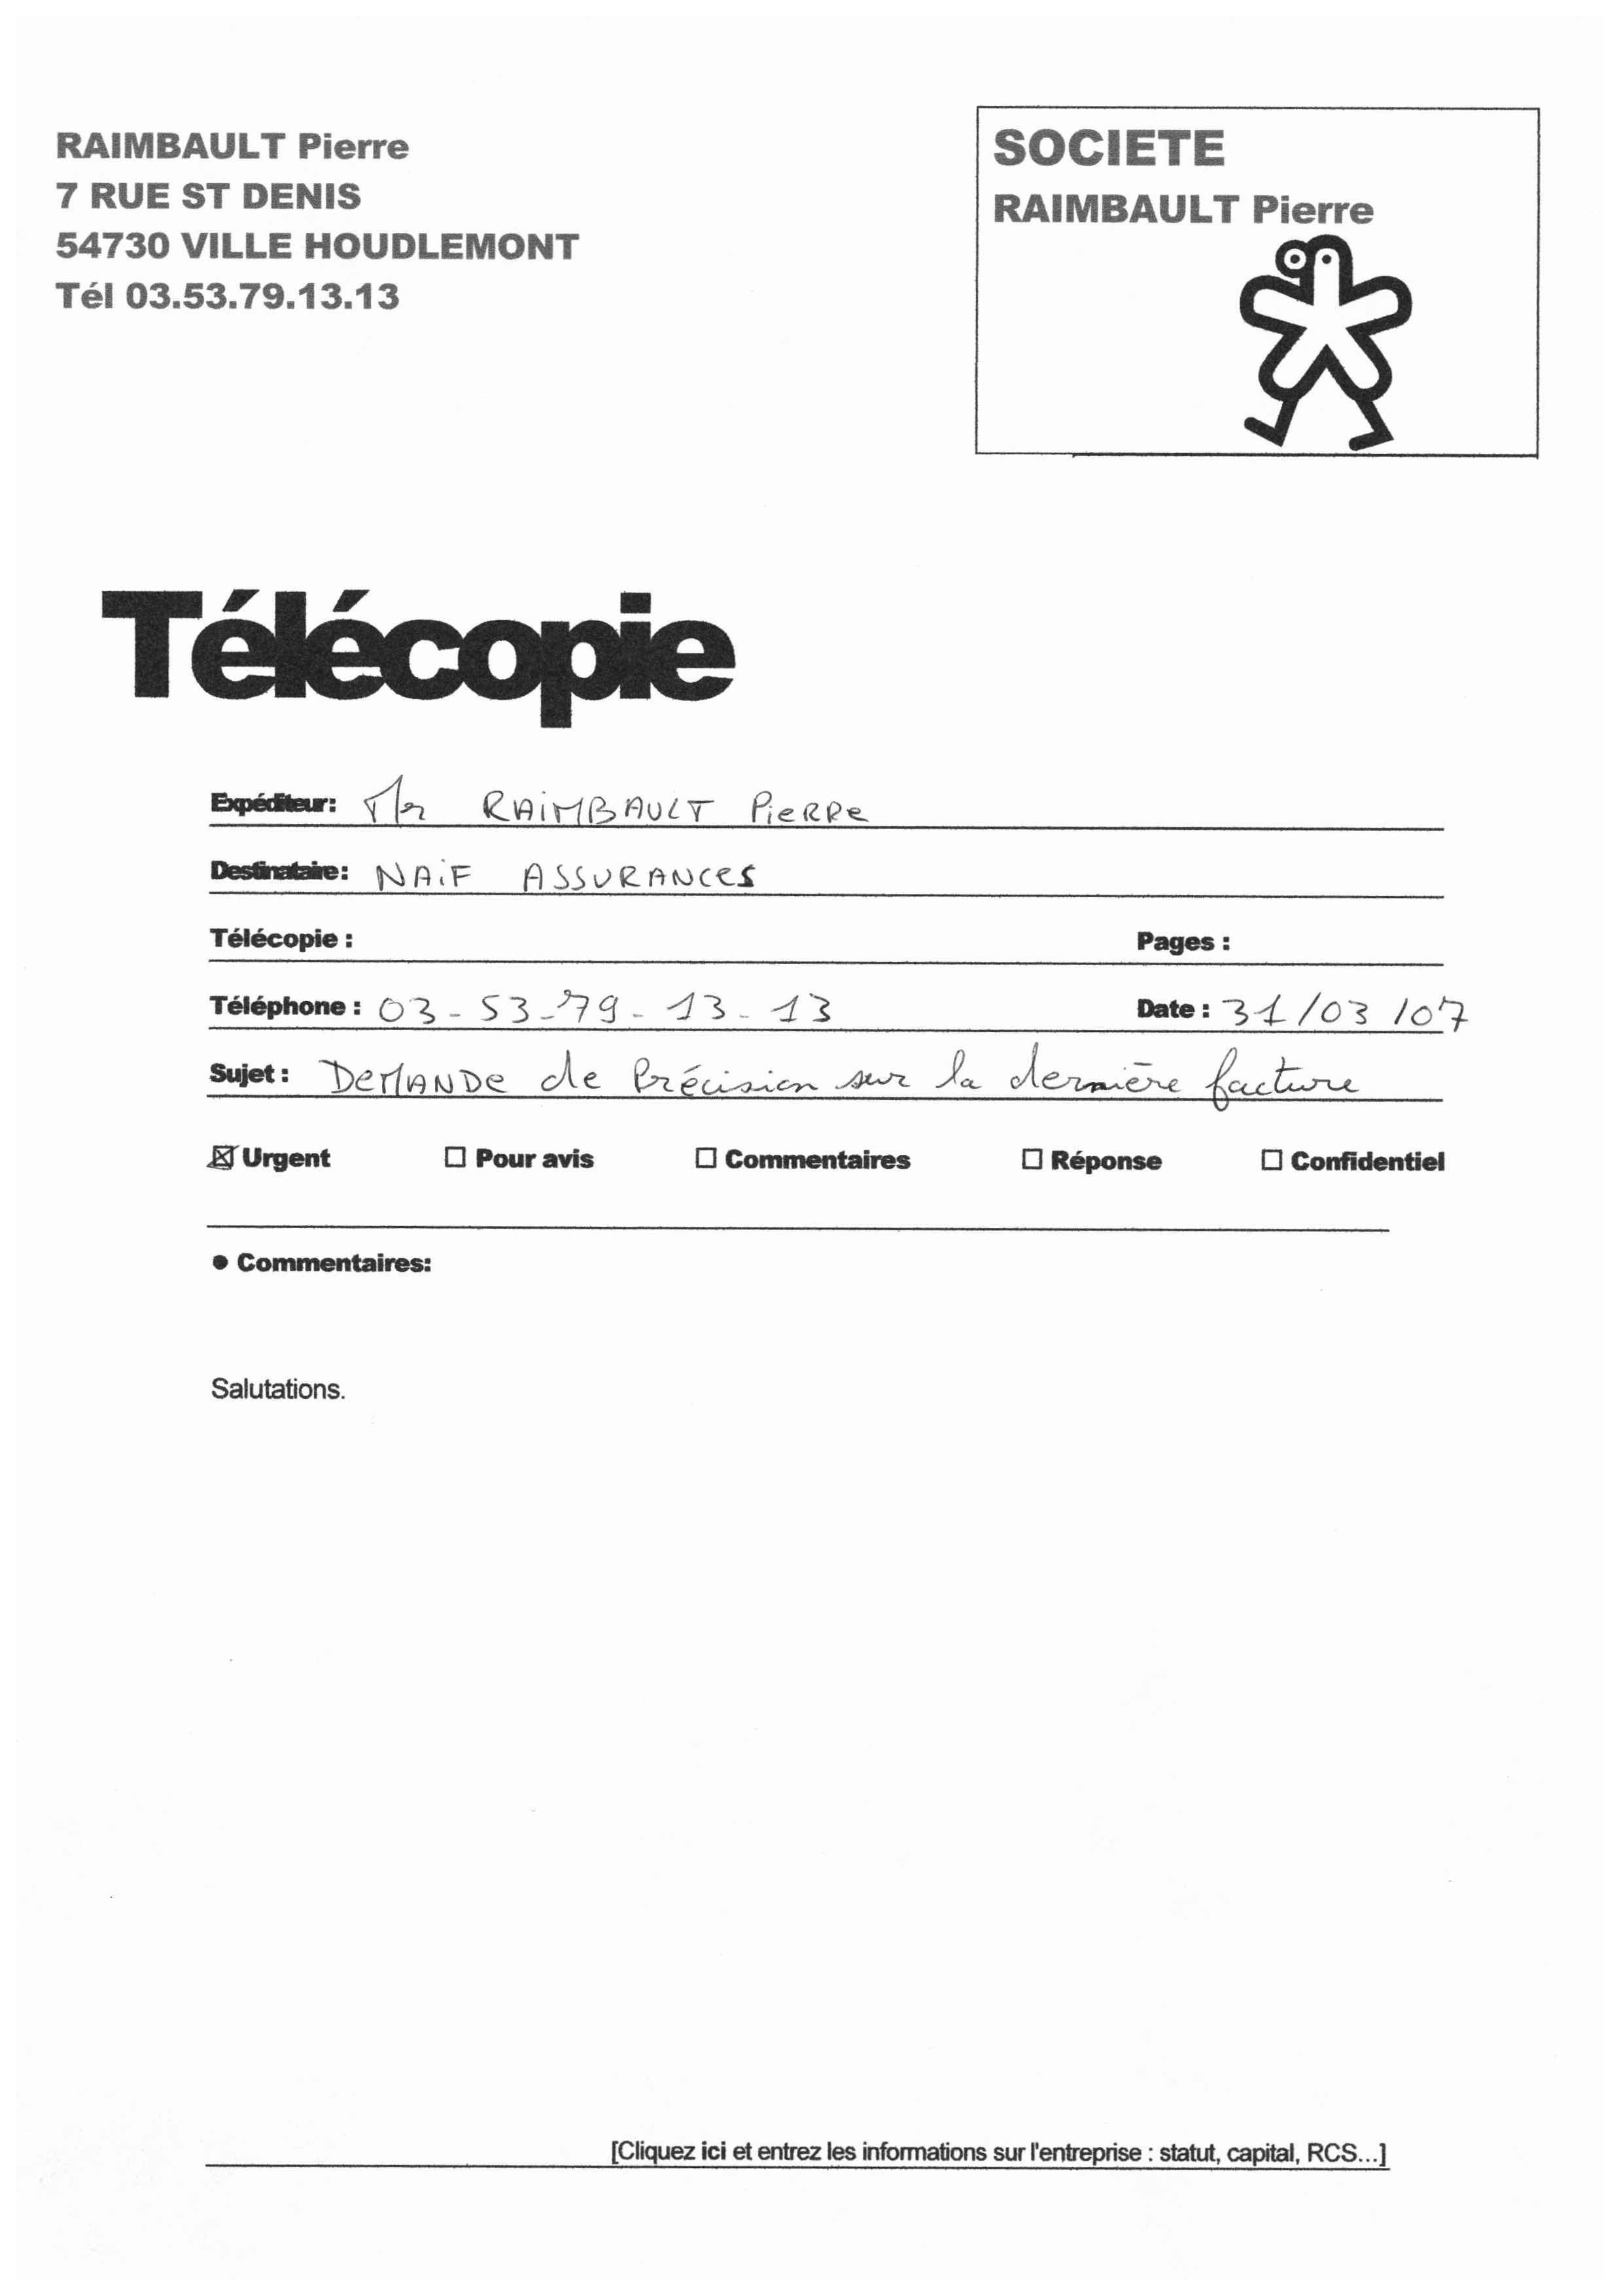 RAIMBAULT Pierre
7 RUE ST DENIS
54730 VILLE HOUDLEMONT
Tél 03.53.79.13.13
SOCIETE
RAIMBAULT Pierre
Télécopie
Expéditeur: Mr RAIMBAULT PieRRe
Destinataire: NAiF ASSURANCES
Télécopie :
Pages :
Téléphone : 03-53-79-13-13
Date : 31/03/07
Sujet : DeMANDe de Précision sur la dernière facture
☒ Urgent ☐ Pour avis ☐ Commentaires ☐ Réponse ☐ Confidentiel
● Commentaires:
Salutations.
[Cliquez ici et entrez les informations sur l'entreprise : statut, capital, RCS...]